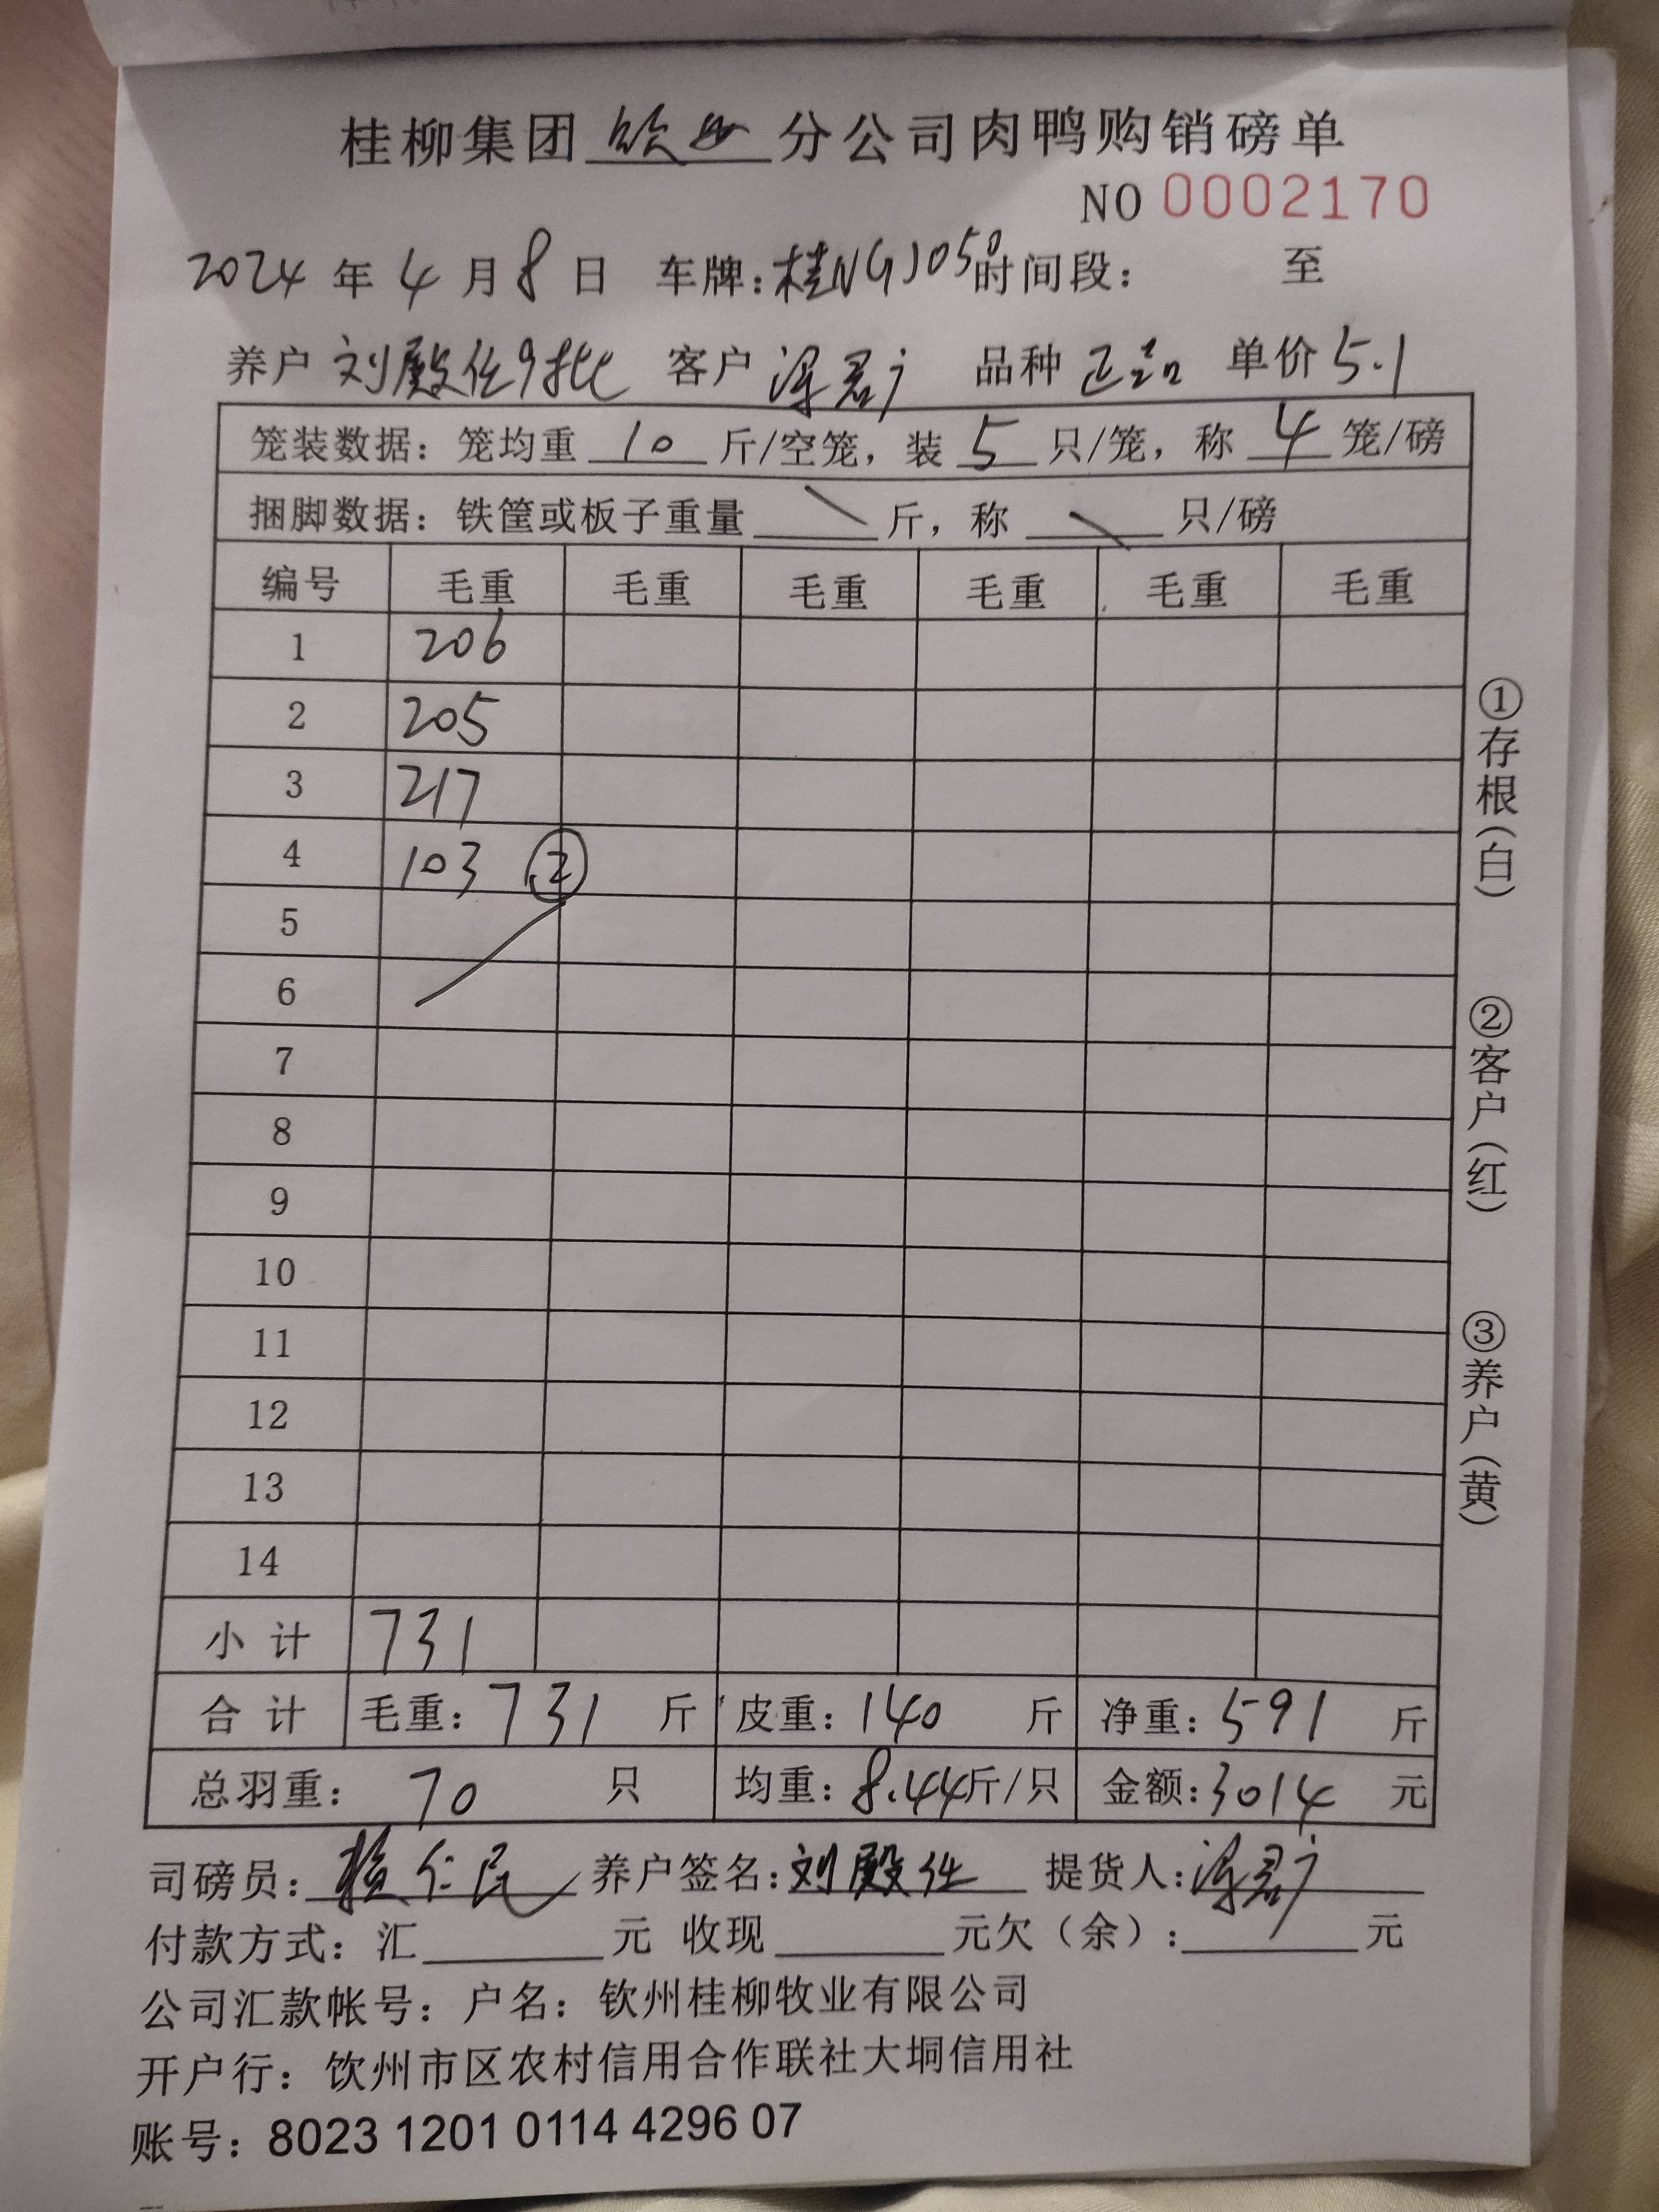 桂柳集团 钦州 分公司肉鸭购销磅单
NO 0002170
2024 年 4 月 8 日 车牌：桂NGJ050 时间段： 至
养户 刘殿仕9批 客户 品种 正品 单价 5.1
笼装数据：笼均重 10 斤/空笼，装 5 只/笼，称 4 笼/磅
捆脚数据：铁筐或板子重量 斤，称 只/磅
编号 毛重 毛重 毛重 毛重 毛重 毛重
1 206
2 205
3 217
4 103 ②
5
6
7
8
9
10
11
12
13
14
小计 731
合计 毛重：731 斤 皮重：140 斤 净重：591 斤
总羽重： 70 只 均重：8.44斤/只 金额：3014 元
司磅员： 仁民 养户签名：刘殿仕 提货人：
付款方式：汇 元 收现 元欠（余）： 元
公司汇款帐号：户名：钦州桂柳牧业有限公司
开户行：饮州市区农村信用合作联社大垌信用社
账号：8023 1201 0114 4296 07
①存根（白）
②客户（红）
③养户（黄）